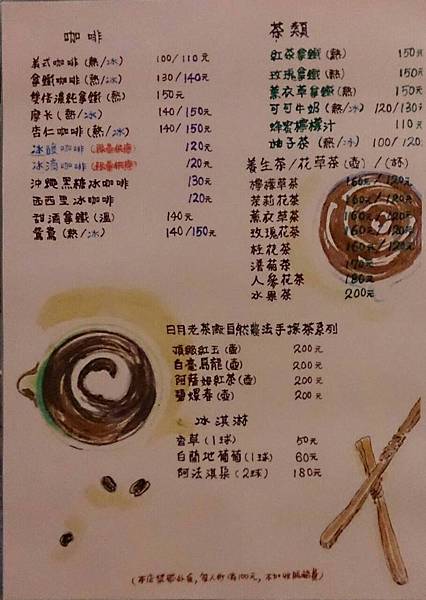 咖啡
美式咖啡(熱/冰) 100/110元
拿鐵咖啡(熱/冰) 130/140元
雙倍濃純拿鐵(熱) 150元
摩卡(熱/冰) 140/150元
杏仁咖啡(熱/冰) 140/150元
冰釀咖啡 120元
冰滴咖啡 120元
沖繩黑糖冰咖啡 130元
西西里冰咖啡 120元
甜酒拿鐵(溫) 140元
鴛鴦(熱/冰) 140/150元
茶類
紅茶拿鐵(熱) 150元
玫瑰拿鐵(熱) 150元
薰衣草拿鐵(熱) 150元
可可牛奶(熱/冰) 120/130
蜂蜜檸檬汁 110元
柚子茶(熱/冰) 100/120
養生茶/花草茶(壺)/(杯)
檸檬草茶 160元/120元
茉莉花茶 160元/120元
薰衣草茶 160元/120元
玫瑰花茶 160元/120元
桂花茶 160元/120元
洛菊茶 170元
人參花茶 180元
水果茶 200元
日月老茶廠自然農法手採茶系列
頂級紅玉(壺) 200元
白毫烏龍(壺) 200元
阿薩姆紅茶(壺) 200元
碧螺春(壺) 200元
冰淇淋
香草(1球) 50元
白蘭地葡萄(1球) 60元
阿法淇朵(2球) 180元
(本店禁帶外食,每人低消100元,不加收服務費)